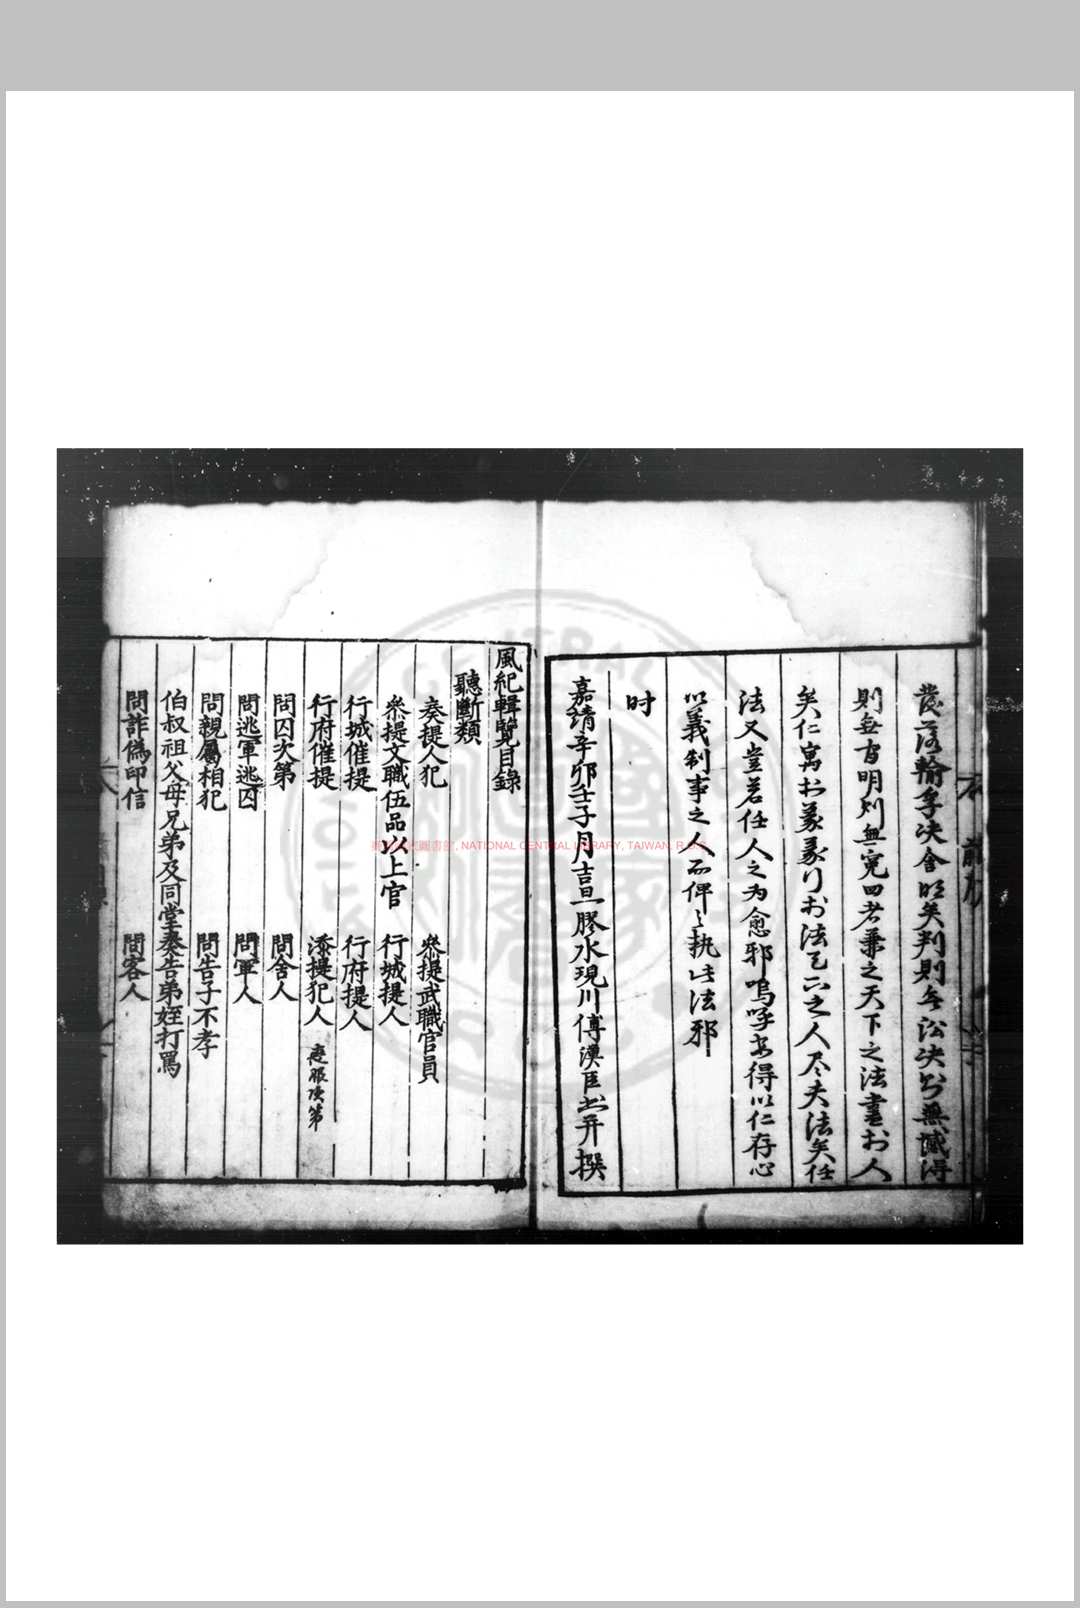 發落輸孚决會明矣判則無訟决則無憾淂
則無育明刋無寃四者兼之天下之法盡於人
矣仁寓於義義行於法已亡之人尽夫法矣任
法又豈若任人之为愈邪嗚呼安得以仁存心
以義制事之人而俾之执此法邪
时
嘉靖辛卯壬子月吉旦膠水現川傅漢臣书并撰
風紀輯覽目錄
聽斷類
奏提人犯 叅提武職官員
叅提文職伍品以上官 行城提人
行城催提 行府提人
行府催提 添提犯人
問囚次第 問舍人
問逃軍逃囚 問軍人
問親屬相犯 問告子不孝
伯叔祖父母兄弟及同堂奏告弟姪打罵
問詐僞印信 問客人
NATIONAL CENTRAL LIBRARY, TAIWAN, R.O.C